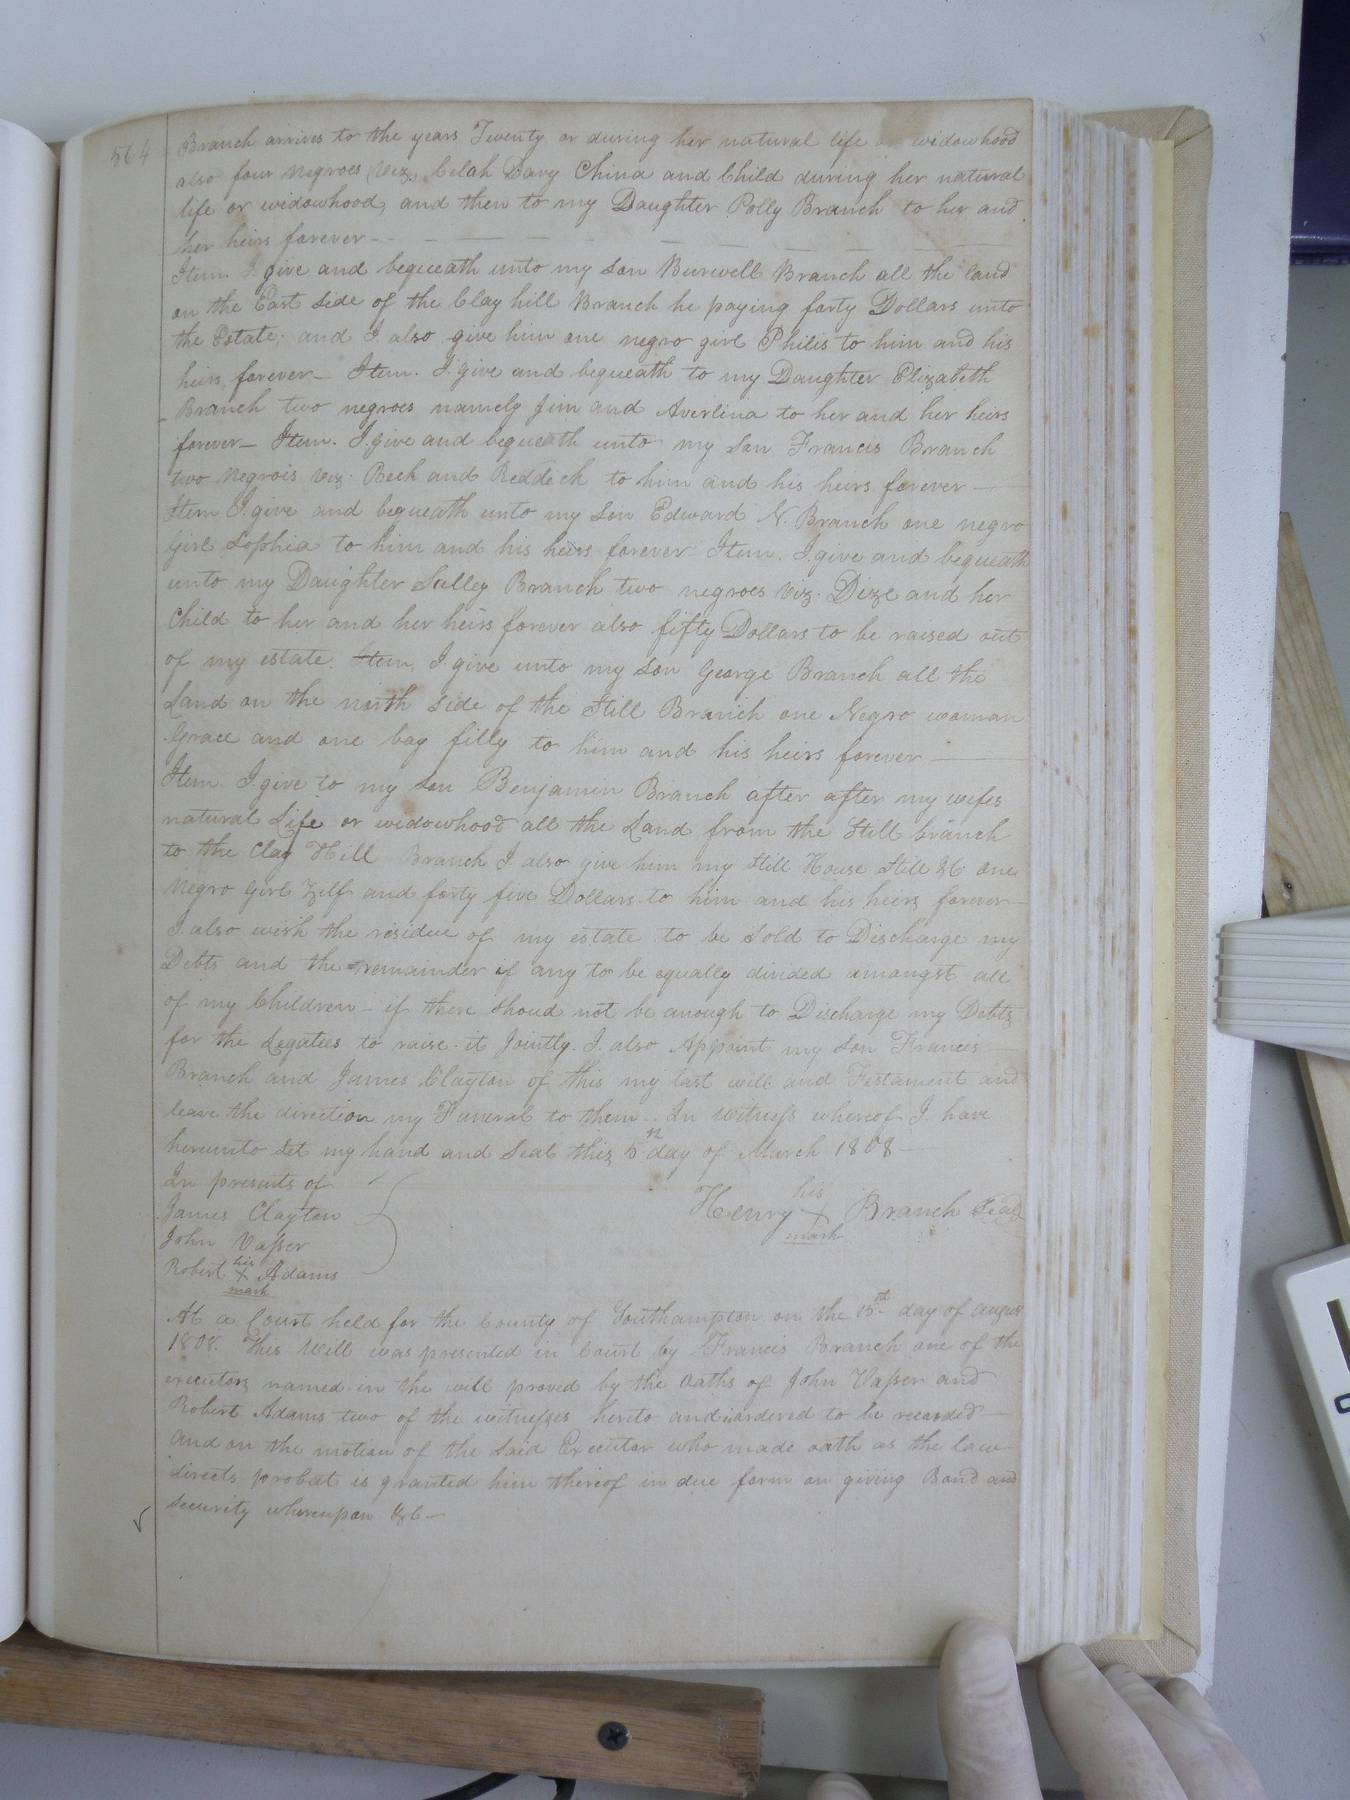 564
Branch arrives to the years Twenty or during her natural life or widowhood
also four negroes (viz, Celah Davy China and Child during her natural
life or widowhood, and then to my Daughter Polly Branch to her and
her heirs forever
Item I give and bequeath unto my son Burwell Branch all the land
on the East side of the Clay hill Branch he paying forty Dollars unto
the Estate, and I also give him one negro girl Philis to him and his
heirs forever – Item. I give and bequeath to my Daughter Elizabeth
Branch two negroes namely Jim and Averlina to her and her heirs
forever – Item. I give and bequeath unto my son Francis Branch
two Negrois viz. Beck and Reddick to him and his heirs forever –
Item I give and bequeath unto my Son Edward N. Branch one negro
Girl Sophia to him and his heirs forever Item. I give and bequeath
unto my Daughter Salley Branch two negroes viz. Dize and her
Child to her and her heirs forever also fifty Dollars to be raised out
of my estate. Item, I give unto my son George Branch all the
Land on the north side of the Still Branch one Negro woman
Grace and one bay filly to him and his heirs forever –
Item. I give to my son Benjamin Branch after after my wifes
natural Life or widowhood all the Land from the Still branch
to the Clay Hill Branch I also give him my Still House Still &C one
Negro Girl Zilf and forty five Dollars to him and his heirs forever –
I also wish the residue of my estate to be Sold to Discharge my
Debts and the remainder if any to be equally divided amongst all
of my Children – if there shoud not be anough to Discharge my Debts
for the Legatees to raise it Jointly. I also Appoint my son Frances
Branch and James Clayton of this my last will and Testament and
leave the direction my Funeral to them. In witness whereof I have
hereunto set my hand and Seal this 5th day of March 1808 –
In presents of
James Clayton
John Vasser
Robert his X mark Adams
Henry his X mark Branch Seal
At a Court held for the County of Southampton on the 15th day of August
1808. This Will was presented in Court by Francis Branch one of the
executors named in the will proved by the oaths of John Vasser and
Robert Adams two of the witnesses hereto and ordered to be recorded –
And on the motion of the said Executor who made oath as the law
directs probat is granted him thereof in due form on giving Bond and
security whereupon &C –